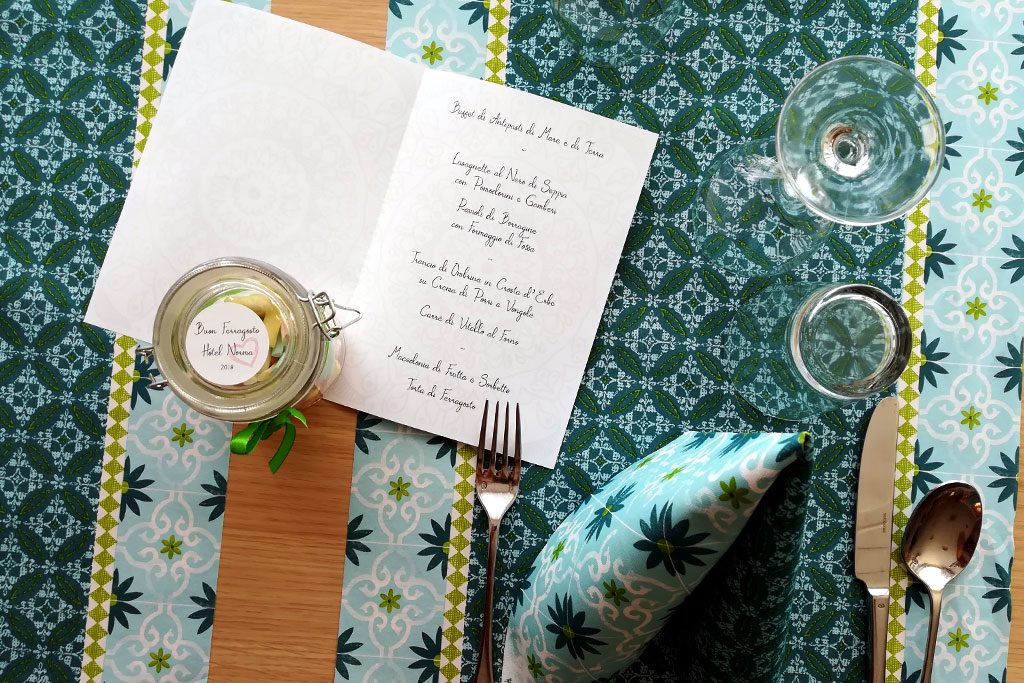 Buffet di Antipasti di Mare e di Terra
~
Lasagnette al Nero di Seppia
con Pomodorini e Gamberi
Ravioli di Borragine
con Formaggio di Fossa
~
Trancio di Ombrina in Crosta d'Erbe
su Crema di Porri e Vongole
Carrè di Vitello al Forno
~
Macedonia di Frutta e Sorbetto
Torta di Ferragosto
Buon Ferragosto
Hotel Norma
2018